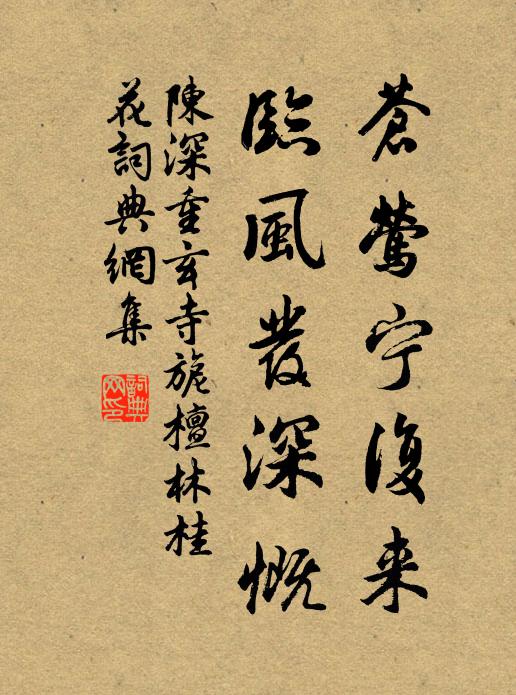 蒼鶯宁復来
臨風發深慨
陳深重玄寺旃檀林桂
花詞典網集
詞典网印